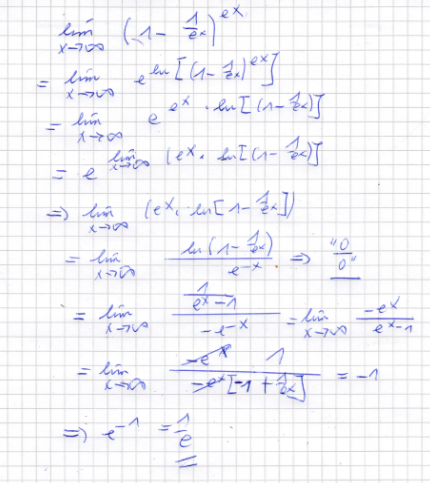 lim x→∞ (1 - 1/e^x)^(e^x)
= lim x→∞ e^(ln[(1 - 1/e^x)^(e^x)])
= lim x→∞ e^(e^x · ln[(1 - 1/e^x)])
= e^(lim x→∞ (e^x · ln[(1 - 1/e^x)])
⇒ lim x→∞ (e^x · ln[1 - 1/e^x])
= lim x→∞ ln(1 - 1/e^x) / e^-x ⇒ "0/0"
= lim x→∞ (1/(e^x - 1)) / (-e^-x) = lim x→∞ -e^x / (e^x - 1)
= lim x→∞ -e^x 1 / -e^x[-1 + 1/e^x] = -1
⇒ e^-1 = 1/e